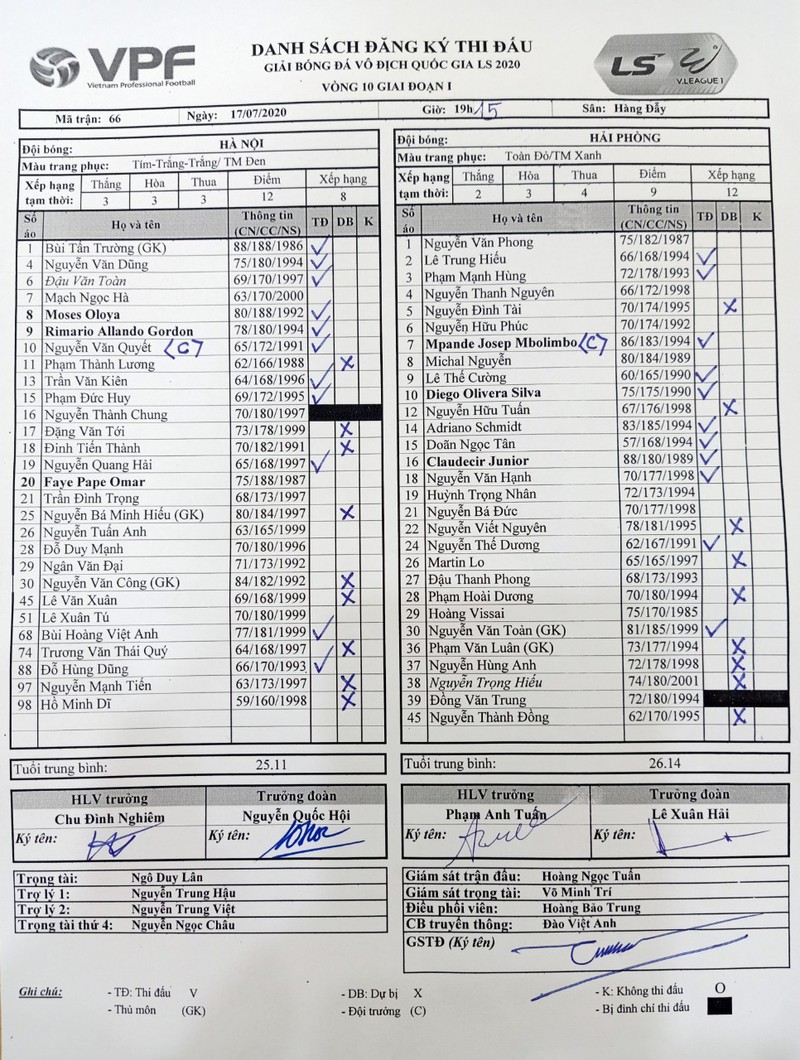 VPF
Vietnam Professional Football
DANH SÁCH ĐĂNG KÝ THI ĐẤU
GIẢI BÓNG ĐÁ VÔ ĐỊCH QUỐC GIA LS 2020
VÒNG 10 GIAI ĐOẠN I
LS
V.LEAGUE 1
Mã trận: 66 Ngày: 17/07/2020 Giờ: 19h15 Sân: Hàng Đẫy
Đội bóng: HÀ NỘI
Màu trang phục: Tím-Trắng-Trắng/ TM Đen
Xếp hạng tạm thời: Thắng Hòa Thua Điểm Xếp hạng
3 3 3 12 8
Số áo Họ và tên Thông tin (CN/CC/NS) TĐ DB K
1 Bùi Tấn Trường (GK) 88/188/1986 ✓
4 Nguyễn Văn Dũng 75/180/1994 ✓
6 Đậu Văn Toàn 69/170/1997 ✓
7 Mạch Ngọc Hà 63/170/2000
8 Moses Oloya 80/188/1992 ✓
9 Rimario Allando Gordon 78/180/1994 ✓
10 Nguyễn Văn Quyết (C) 65/172/1991 ✓
11 Phạm Thành Lương 62/166/1988 X
13 Trần Văn Kiên 64/168/1996 ✓
15 Phạm Đức Huy 69/172/1995 ✓
16 Nguyễn Thành Chung 70/180/1997
17 Đặng Văn Tới 73/178/1999 X
18 Đinh Tiến Thành 70/182/1991 X
19 Nguyễn Quang Hải 65/168/1997 ✓
20 Faye Pape Omar 75/188/1987
21 Trần Đình Trọng 68/173/1997
25 Nguyễn Bá Minh Hiếu (GK) 80/184/1997 X
26 Nguyễn Tuấn Anh 63/165/1999
28 Đỗ Duy Mạnh 70/180/1996
29 Ngân Văn Đại 71/173/1992
30 Nguyễn Văn Công (GK) 84/182/1992 X
45 Lê Văn Xuân 69/168/1999 X
51 Lê Xuân Tú 70/180/1999
68 Bùi Hoàng Việt Anh 77/181/1999 ✓
74 Trương Văn Thái Quý 64/168/1997 X
88 Đỗ Hùng Dũng 66/170/1993 ✓
97 Nguyễn Mạnh Tiến 63/173/1997 X
98 Hồ Minh Dĩ 59/160/1998 X
Tuổi trung bình: 25.11
HLV trưởng Trưởng đoàn
Chu Đình Nghiêm Nguyễn Quốc Hội
Ký tên: Ký tên:
Trọng tài: Ngô Duy Lân
Trợ lý 1: Nguyễn Trung Hậu
Trợ lý 2: Nguyễn Trung Việt
Trọng tài thứ 4: Nguyễn Ngọc Châu
Đội bóng: HẢI PHÒNG
Màu trang phục: Toàn Đỏ/TM Xanh
Xếp hạng tạm thời: Thắng Hòa Thua Điểm Xếp hạng
2 3 4 9 12
Số áo Họ và tên Thông tin (CN/CC/NS) TĐ DB K
1 Nguyễn Văn Phong 75/182/1987
2 Lê Trung Hiếu 66/168/1994 ✓
3 Phạm Mạnh Hùng 72/178/1993 ✓
4 Nguyễn Thanh Nguyên 66/172/1998
5 Nguyễn Đình Tài 70/174/1995 X
6 Nguyễn Hữu Phúc 70/174/1992
7 Mpande Josep Mbolimbo (C) 86/183/1994 ✓
8 Michal Nguyễn 80/184/1989
9 Lê Thế Cường 60/165/1990 ✓
10 Diego Olivera Silva 75/175/1990 ✓
12 Nguyễn Hữu Tuấn 67/176/1998 X
14 Adriano Schmidt 83/185/1994 ✓
15 Doãn Ngọc Tân 57/168/1994 ✓
16 Claudecir Junior 88/180/1989 ✓
18 Nguyễn Văn Hạnh 70/177/1998 ✓
19 Huỳnh Trọng Nhân 72/173/1994
21 Nguyễn Bá Đức 70/177/1998
22 Nguyễn Viết Nguyên 78/181/1995 X
24 Nguyễn Thế Dương 62/167/1991 ✓
26 Martin Lo 65/165/1997 X
27 Đậu Thanh Phong 68/173/1993
28 Phạm Hoài Dương 70/180/1994 X
29 Hoàng Vissai 75/170/1985
30 Nguyễn Văn Toản (GK) 81/185/1999 ✓
36 Phạm Văn Luân (GK) 73/177/1994 X
37 Nguyễn Hùng Anh 72/178/1998 X
38 Nguyễn Trọng Hiếu 74/180/2001 X
39 Đồng Văn Trung 72/180/1994
45 Nguyễn Thành Đồng 62/170/1995 X
Tuổi trung bình: 26.14
HLV trưởng Trưởng đoàn
Phạm Anh Tuấn Lê Xuân Hải
Ký tên: Ký tên:
Giám sát trận đấu: Hoàng Ngọc Tuấn
Giám sát trọng tài: Võ Minh Trí
Điều phối viên: Hoàng Bảo Trung
CB truyền thông: Đào Việt Anh
GSTĐ (Ký tên)
Ghi chú: - TĐ: Thi đấu V - DB: Dự bị X - K: Không thi đấu O
- Thủ môn (GK) - Đội trưởng (C) - Bị đình chỉ thi đấu